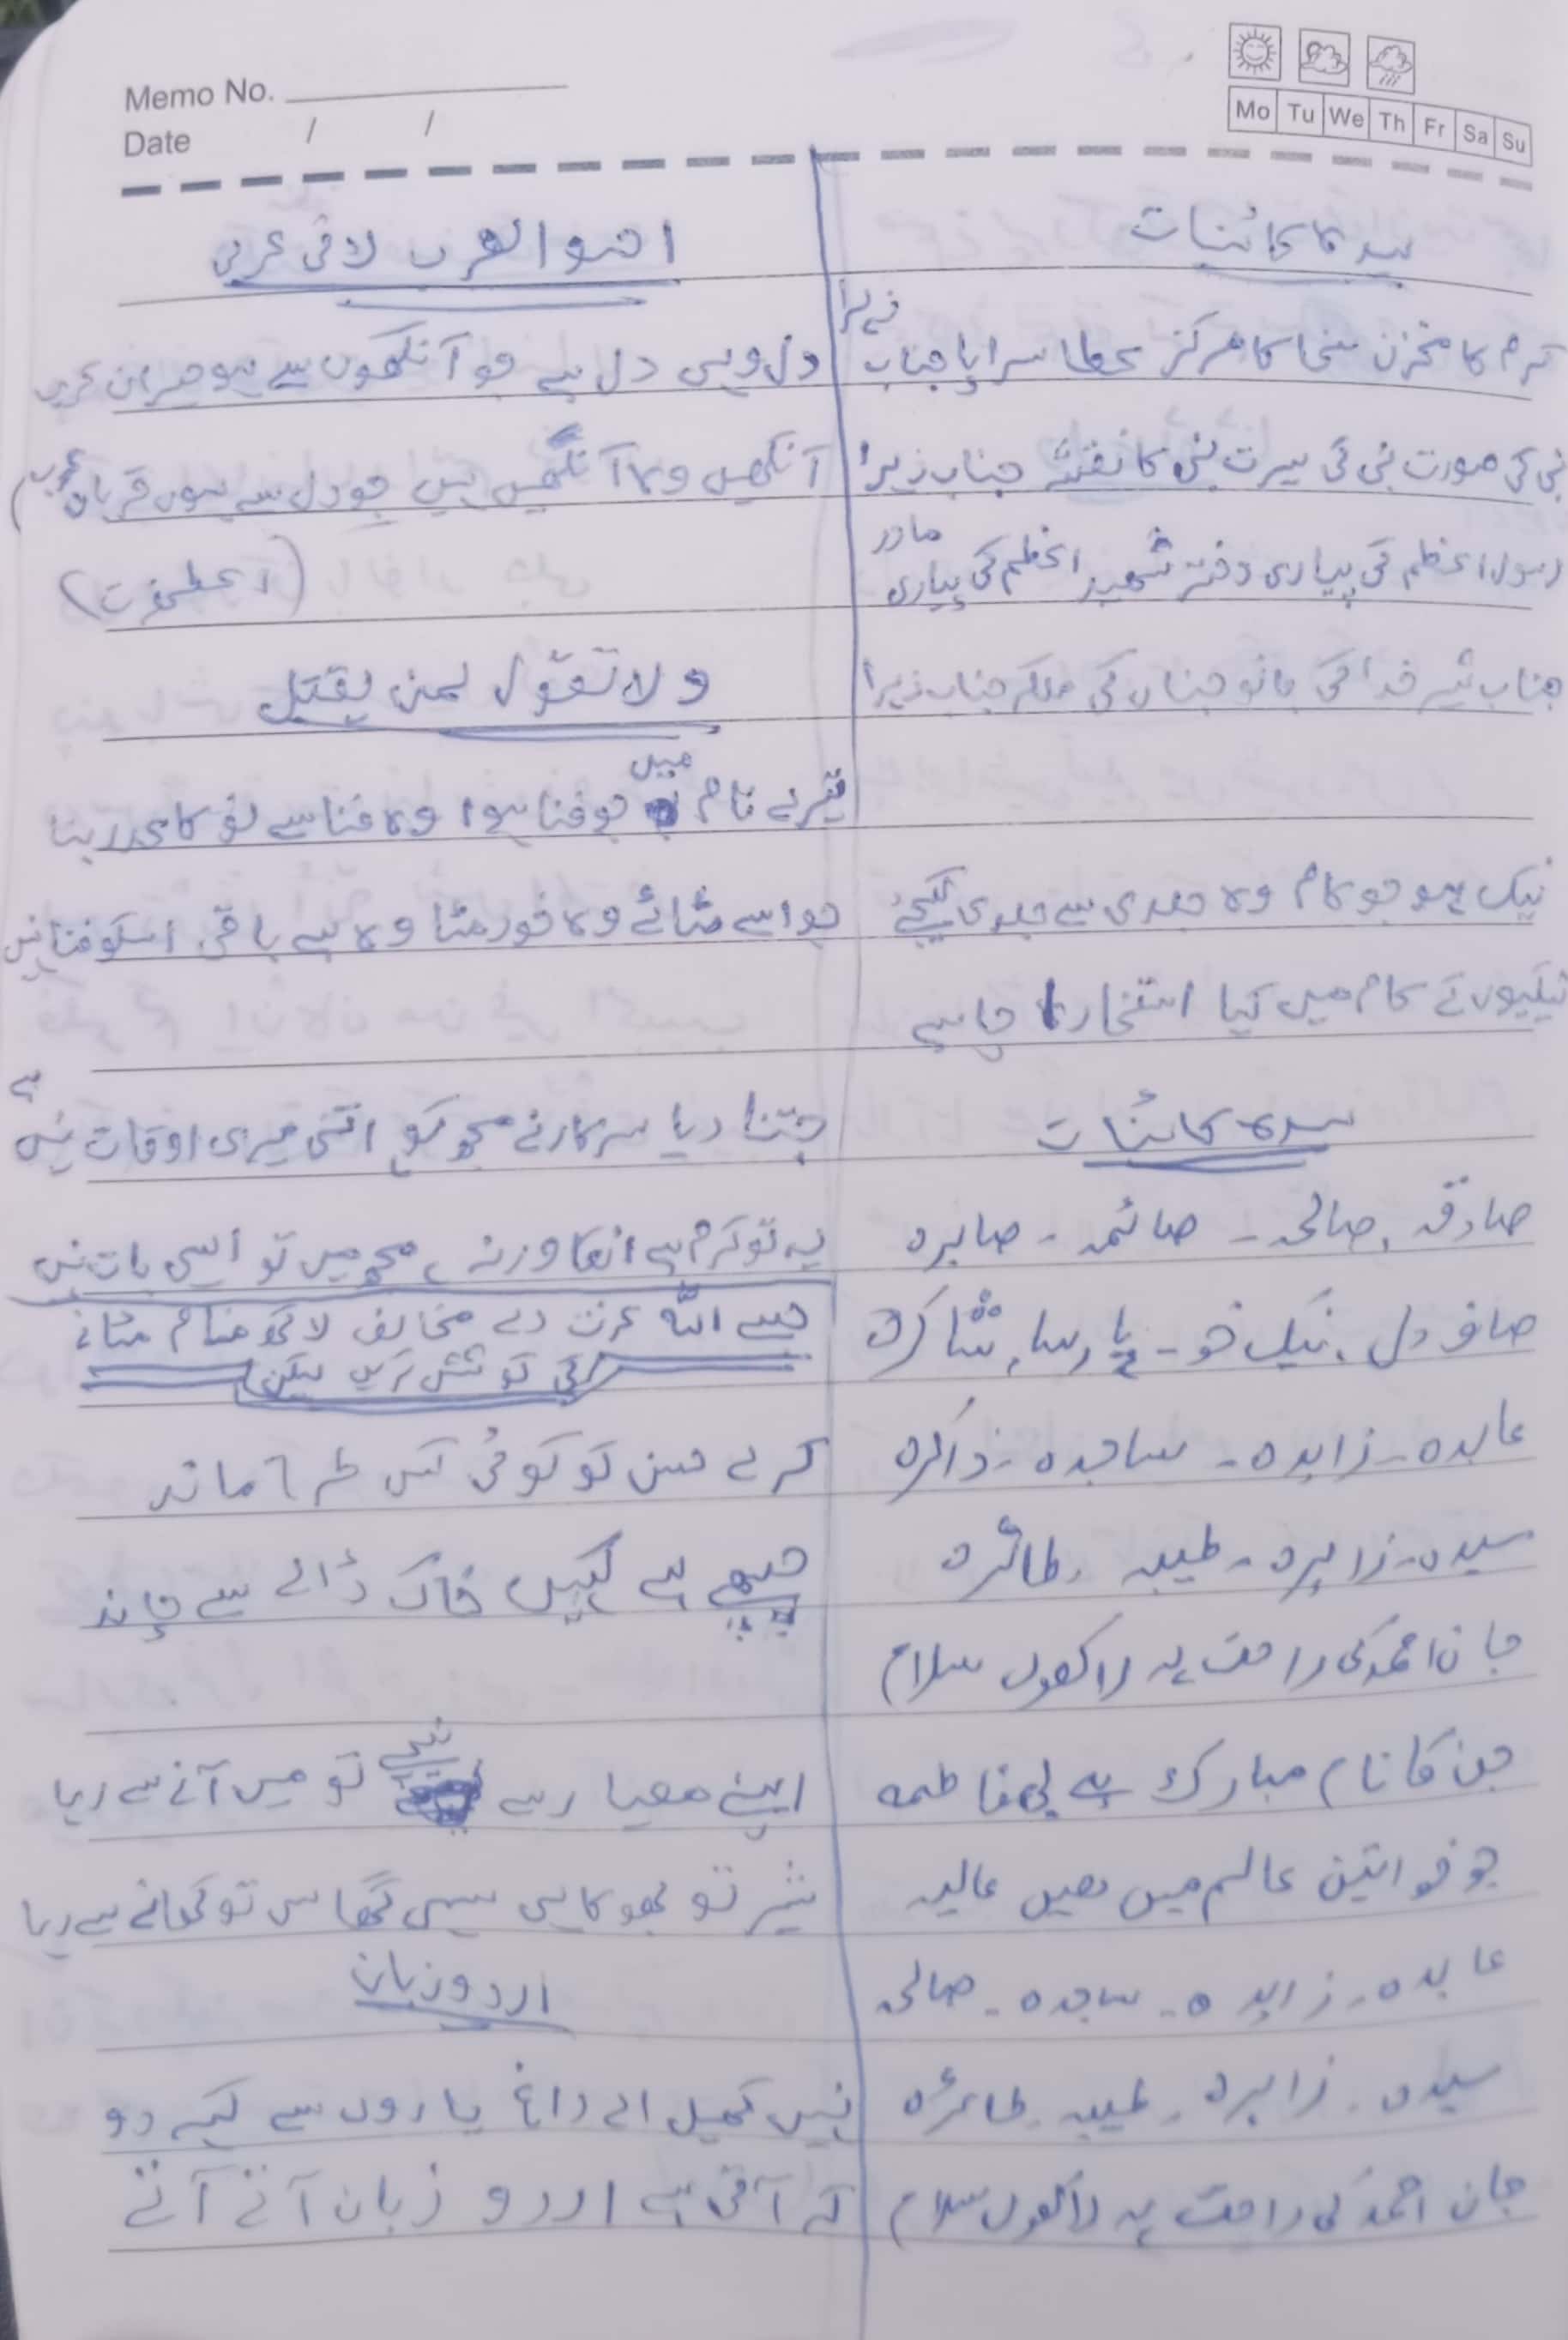 Memo No.
Date / /
Mo Tu We Th Fr Sa Su
سیدہ کائنات
کرم کا مخزن سخا کا مرکز عطا سراپا جناب زہرا
نبی کی صورت نبی کی سیرت نبی کا نقشہ جناب زہرا
رسول اعظم کی پیاری دختر شھید اعظم کی پیاری مادر
جناب شیر خدا کی بانو جناں کی ملکہ جناب زہرا
نیک ہو جو کام وہ جلدی سے جلدی کیجئے
نیکیوں کے کام میں کیا استخارا چاہیے
سیدہ کائنات
صادقہ ، صالحہ - صائمہ - صابرہ
صاف دل ، نیک خو - پارسا ، شاکرہ
عابدہ - زاہدہ - ساجدہ - ذاکرہ
سیدہ - زاہرہ - طیبہ ، طائرہ
جان احمد کی راحت پہ لاکھوں سلام
جن کا نام مبارک ہے بی فاطمہ
جو خواتین عالم میں ھیں عالیہ
عابدہ - زاہدہ - ساجدہ - صالحہ
سیدہ - زاہرہ - طیبہ - طائرہ
جان احمد کی راحت پہ لاکھوں سلام
احبوا العرب لانی عربی
دل وہی دل ہے جو آنکھوں سے ہو حیران عرب
آنکھیں وہ آنکھیں ہیں جو دل سے ہوں قربان عرب
(اعلحضرت)
ولا تقول لمن یقتل
تیرے نام میں جو فنا ہوا وہ فنا سے نو کا عدد بنا
جو اسے مٹائے وہ خود مٹا وہ ہے باقی اسکو فنا نہیں
جتنا دیا سرکار نے مجھ کو اتنی میری اوقات نہیں ہے
یہ تو کرم ہے انکا ورنہ ، مجھ میں تو ایسی بات نہیں
جسے اللہ عزت دے مخالف لاکھ مٹانے
کی کوشش کریں لیکن
کرے حسن کو کوئی کس طرح ماند
چھپے ہے کہیں خاک ڈالے سے چاند
اپنے معیار سے نیچے تو میں آنے سے رہا
شیر تو بھوکا ہی سہی گھاس تو کھانے سے رہا
اردو زبان
نہیں کھیل اے داغ یاروں سے کہہ دو
کہ آتی ہے اردو زبان آتے آتے